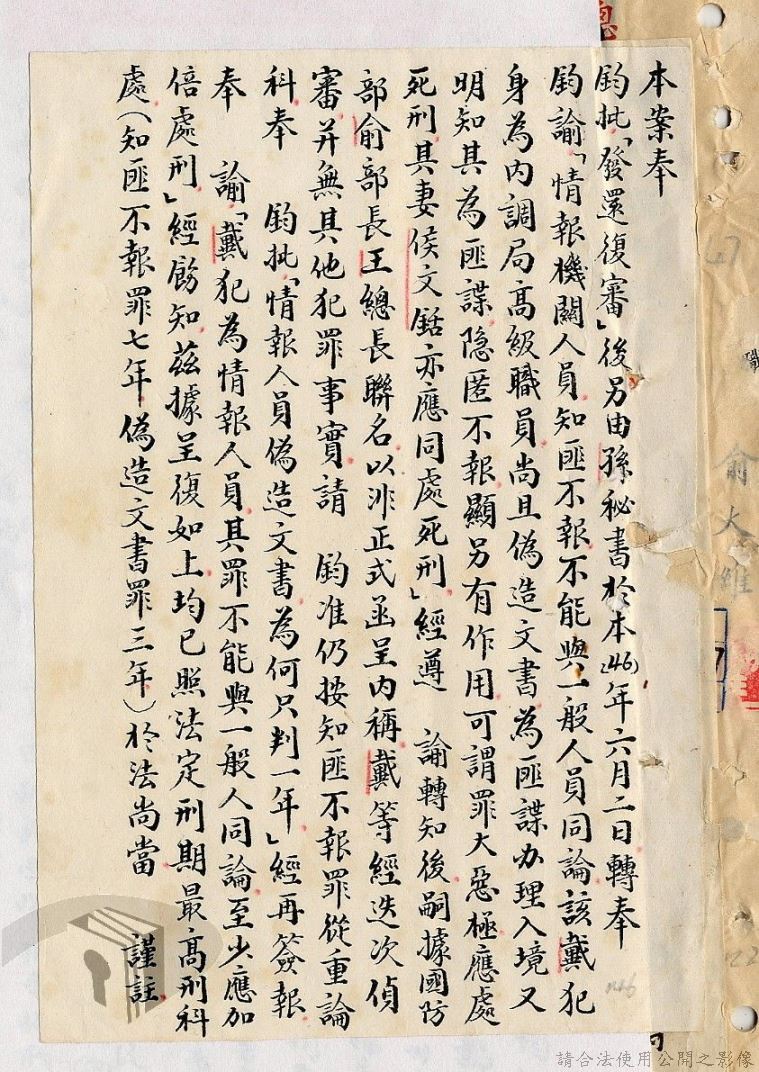 本案奉
鈞批「發還復審」後另由孫秘書於本(46)年六月二日轉奉
鈞諭「情報機關人員知匪不報不能與一般人員同論該戴犯
身為內調局高級職員尚且偽造文書為匪諜办理入境又
明知其為匪諜隐匿不報顯另有作用可謂罪大惡極應處
死刑其妻侯文銛亦應同處死刑」經遵 諭轉知後嗣據國防
部俞部長王總長聯名以非正式函呈內稱戴等經迭次偵
審并無其他犯罪事實請 鈞准仍按知匪不報罪從重論
科奉 鈞批「情報人員偽造文書為何只判一年」經再簽報
奉 諭「戴犯為情報人員其罪不能與一般人同論至少應加
倍處刑」經飭知茲據呈復如上均已照法定刑期最高刑科
處(知匪不報罪七年偽造文書罪三年)於法尚當 謹註
俞大維
請合法使用公開之影像